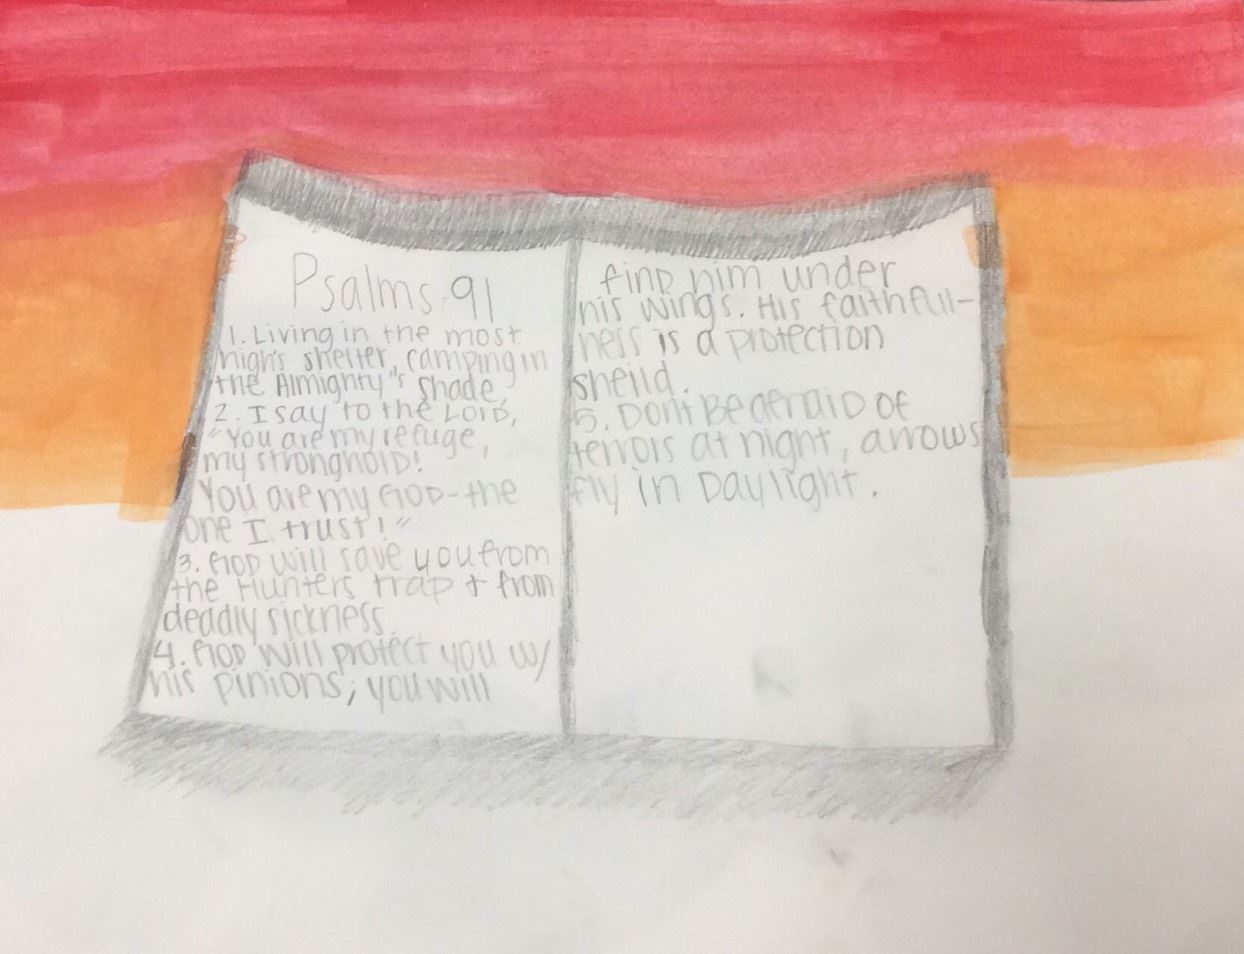 Psalms 91
1. Living in the most
high's shelter, camping in
the Almighty"s shade.
2. I say to the Lord,
"You are my refuge,
my stronghold!
You are my God-the
one I trust!"
3. God will save you from
the Hunters trap + from
deadly sickness.
4. God will protect you w/
his pinions; you will
find him under
his wings. His faithful-
ness is a protection
sheild.
5. Dont Be afraid of
terrors at night, arrows
fly in Daylight.